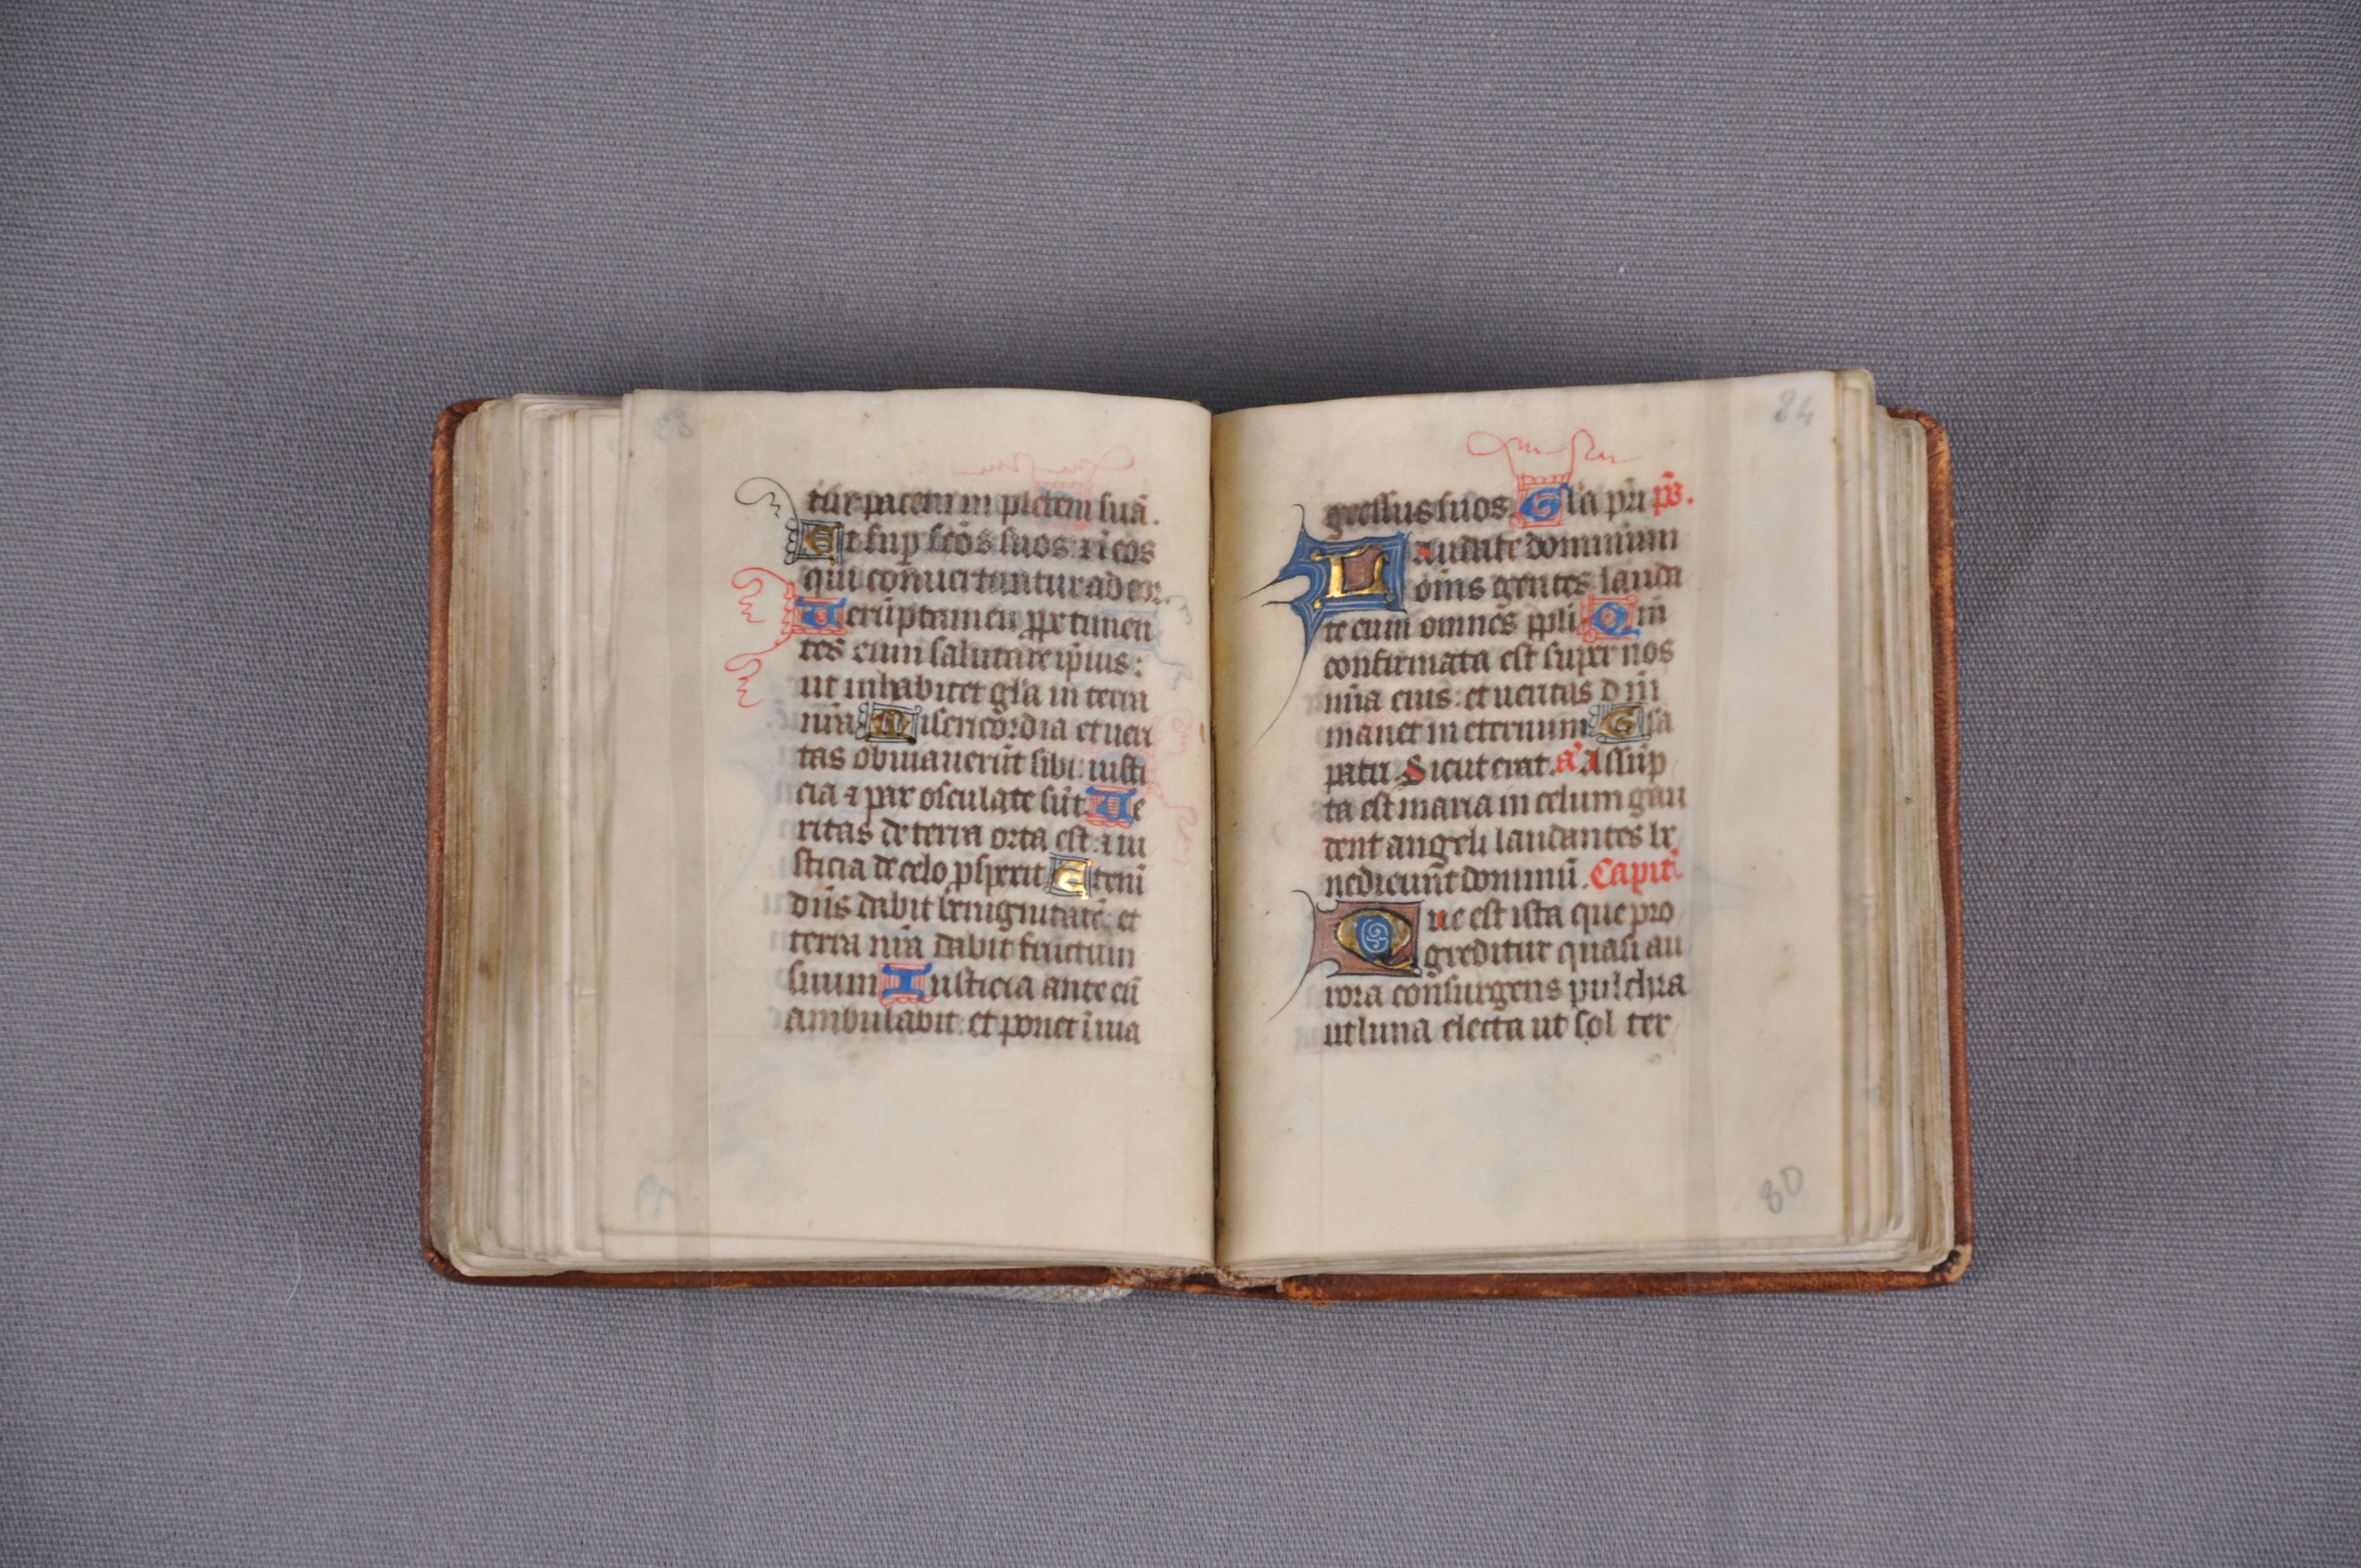 tur pacem in plebem suā.
Et sup scōs suos: ⁊ ī eos
qui conuertuntur ad cor.
Uerūptamen ꝓpe timen
tes eum salutare ip̄ius:
ut inhabitet gl̄a in terra
nr̄a Misericordia et ueri
tas obuiauerūt sibi: iusti
cia ⁊ pax osculate sūt Ue
ritas de terra orta est: ⁊ iu
sticia de celo ꝓspexit Eteni̅
dn̄s dabit benignitatē: et
terra nr̄a dabit fructum
suum Iusticia ante eū
ambulabit: et ponet ī uia
84
gressus suos Gl̄a pr̄i p̄s.
Laudate dominum
om̄s gentes lauda
te eum omnes ppl̄i Qm̄
confirmata est super nos
mīa eius: et ueritas dn̄i
manet in eternum Gl̄a
patri Sicut erat. a᷎ Assūp
ta est maria in celum gau
dent angeli laudantes be
nedicunt dominū. Capit̄
Que est ista que pro
greditur quasi au
rora consurgens pulchra
ut luna electa ut sol ter
80